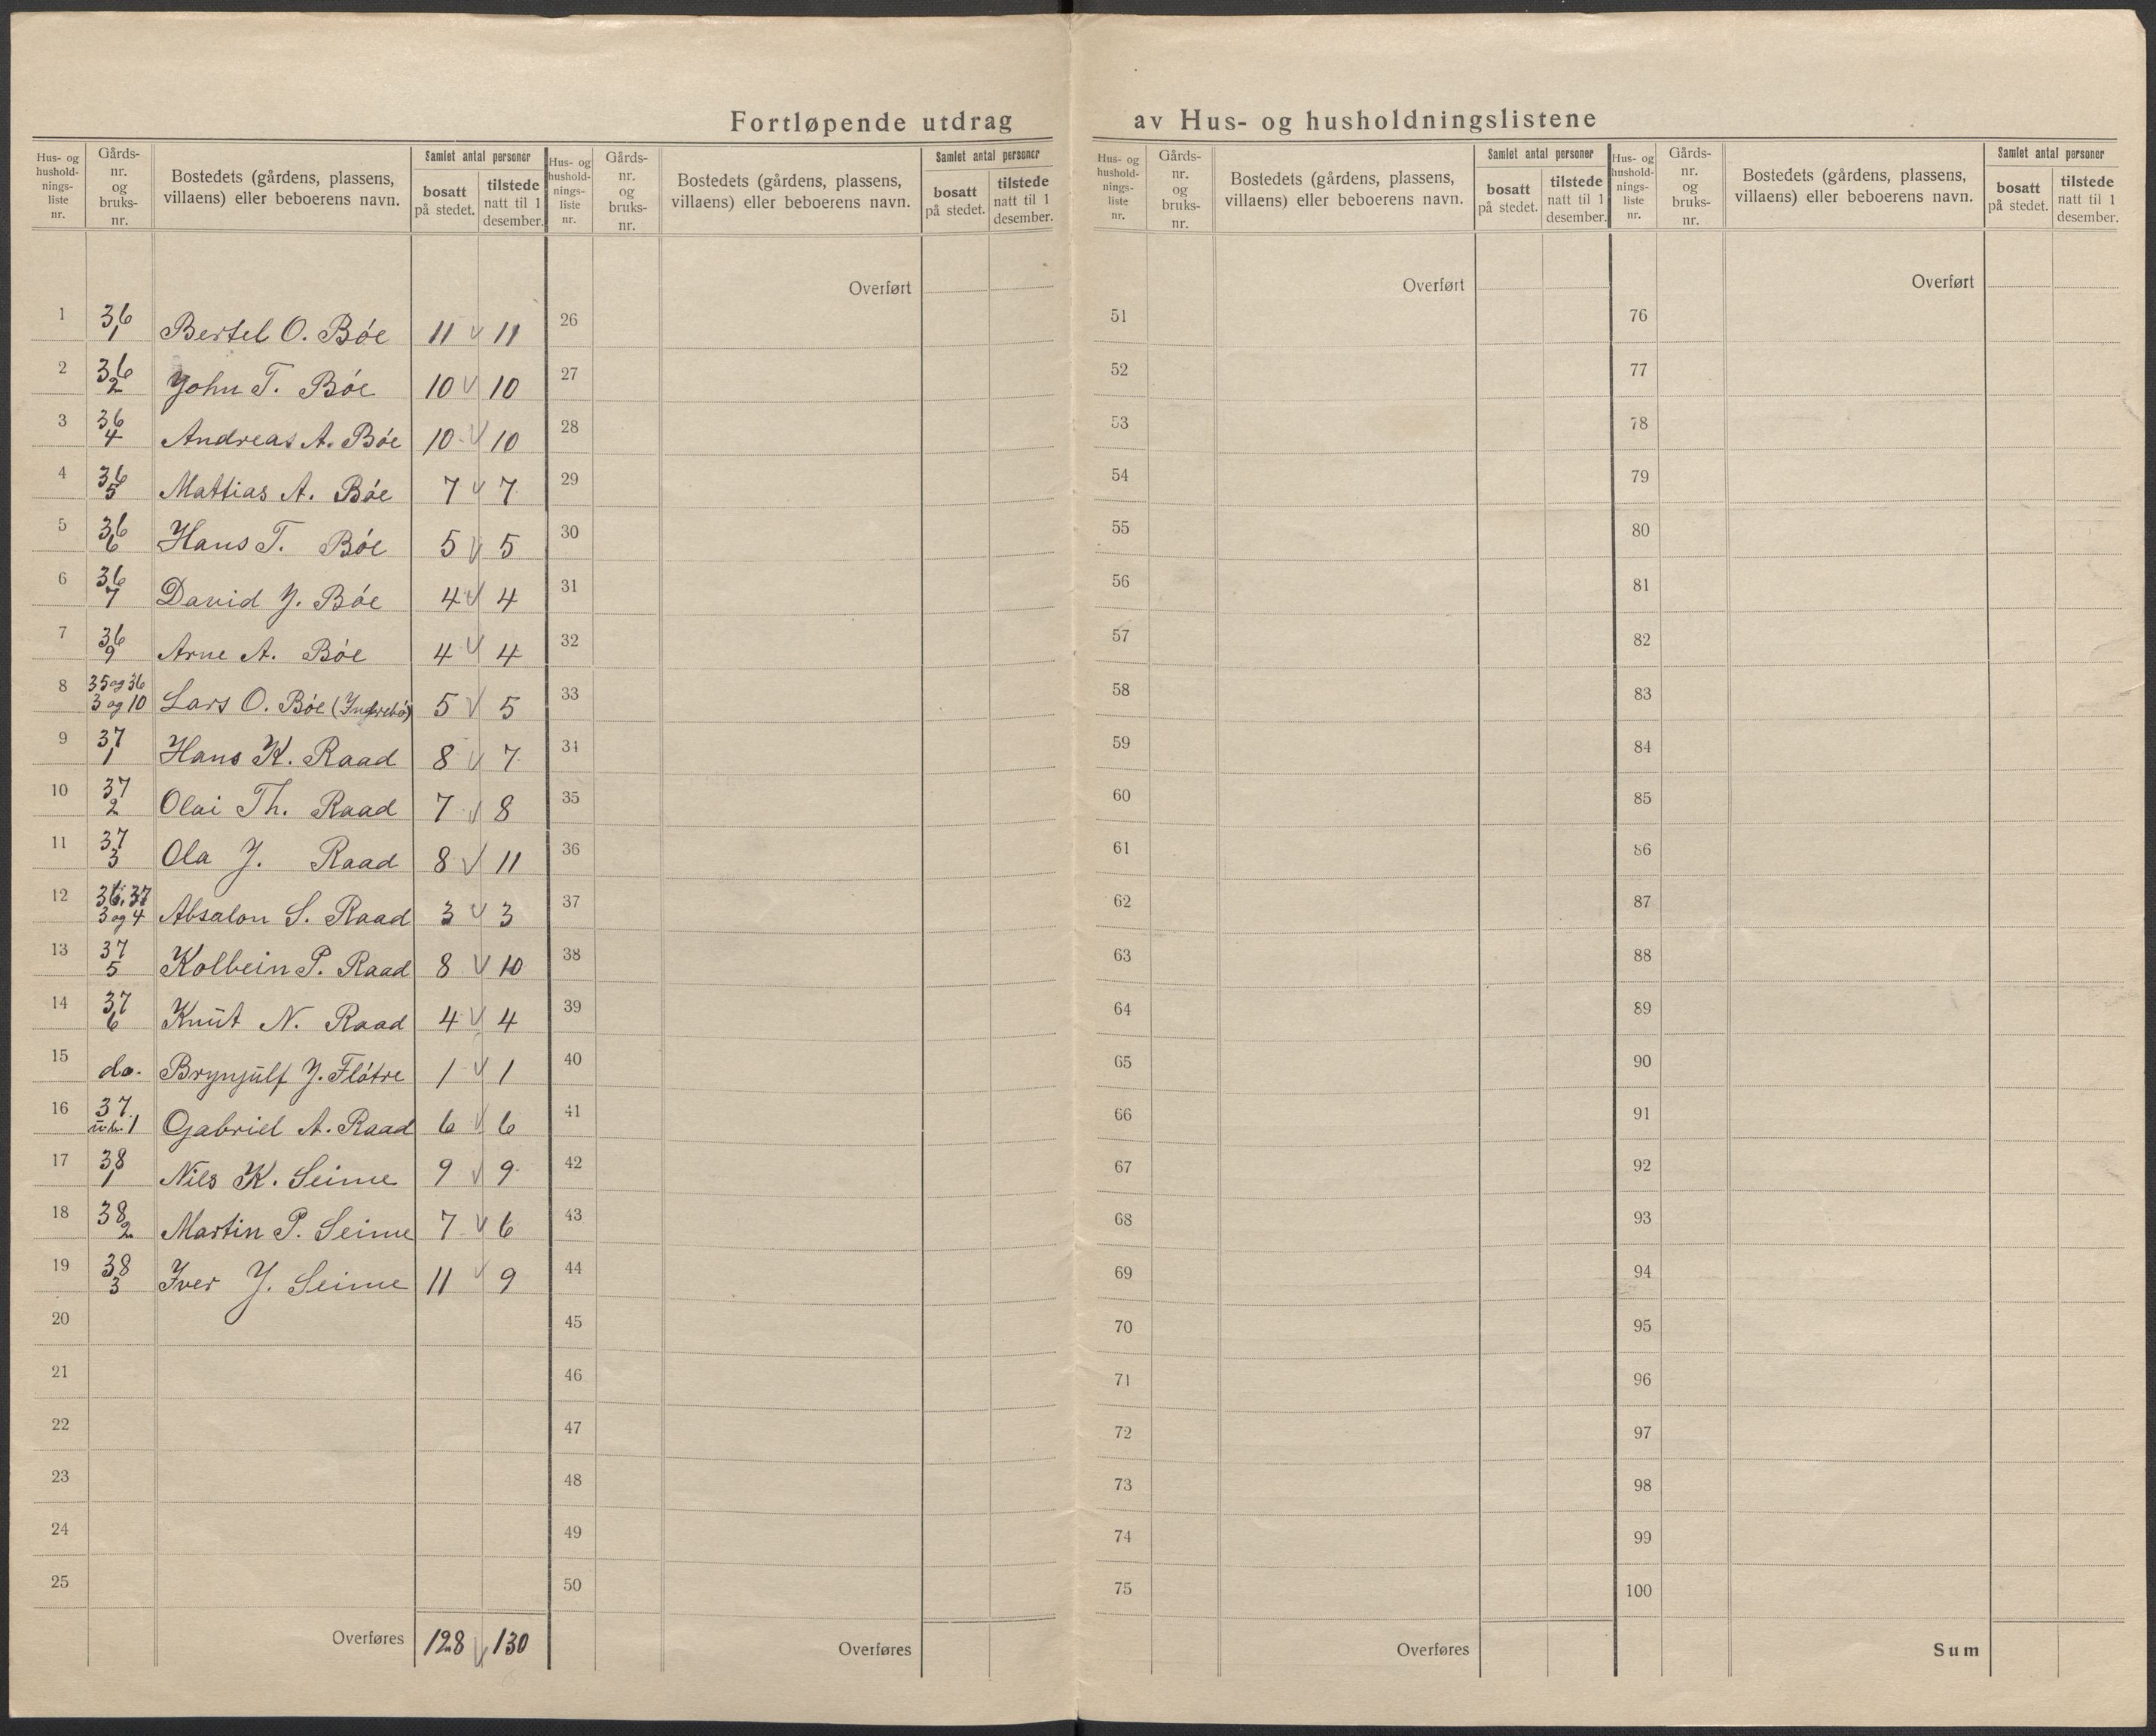 Fortløpende utdrag av Hus- og husholdningslistene
Hus- og hushold-nings-liste nr. Gårds-nr. og bruks-nr. Bostedets (gårdens, plassens, villaens) eller beboerens navn. Samlet antal personer bosatt på stedet. tilstede natt til 1 desember.
Hus- og hushold-nings-liste nr. Gårds-nr. og bruks-nr. Bostedets (gårdens, plassens, villaens) eller beboerens navn. Samlet antal personer bosatt på stedet. tilstede natt til 1 desember.
Hus- og hushold-nings-liste nr. Gårds-nr. og bruks-nr. Bostedets (gårdens, plassens, villaens) eller beboerens navn. Samlet antal personer bosatt på stedet. tilstede natt til 1 desember.
Hus- og hushold-nings-liste nr. Gårds-nr. og bruks-nr. Bostedets (gårdens, plassens, villaens) eller beboerens navn. Samlet antal personer bosatt på stedet. tilstede natt til 1 desember.
1 36/1 Bertel O. Bóe 11 v 11
2 36/2 John T. Bóe 10 v 10
3 36/4 Andreas A. Bóe 10 v 10
4 36/5 Mattias A. Bóe 7 v 7
5 36/6 Hans T. Bóe 5 v 5
6 36/7 David J. Bóe 4 v 4
7 36/9 Arne A. Bóe 4 v 4
8 35 og 36 3 og 10 Lars O. Bóe (Indrebó) 5 v 5
9 37/1 Hans K. Raad 8 v 7
10 37/2 Olai Th. Raad 7 v 8
11 37/3 Ola J. Raad 8 v 11
12 36. 37 3 og 4 Absalon S. Raad 3 v 3
13 37/5 Kolbein P. Raad 8 v 10
14 37/6 Knut N. Raad 4 v 4
15 do. Brynjulf J. Flótre 1 v 1
16 37 1 Gabriel A. Raad 6 v 6
17 38/1 Nils K. Seime 9 v 9
18 38/2 Martin P. Seime 7 v 6
19 38/3 Iver J. Seime 11 v 9
20
21
22
23
24
25
Overføres 128 v 130
Overført
26
27
28
29
30
31
32
33
34
35
36
37
38
39
40
41
42
43
44
45
46
47
48
49
50
Overføres
Overført
51
52
53
54
55
56
57
58
59
60
61
62
63
64
65
66
67
68
69
70
71
72
73
74
75
Overføres
Overført
76
77
78
79
80
81
82
83
84
85
86
87
88
89
90
91
92
93
94
95
96
97
98
99
100
Sum